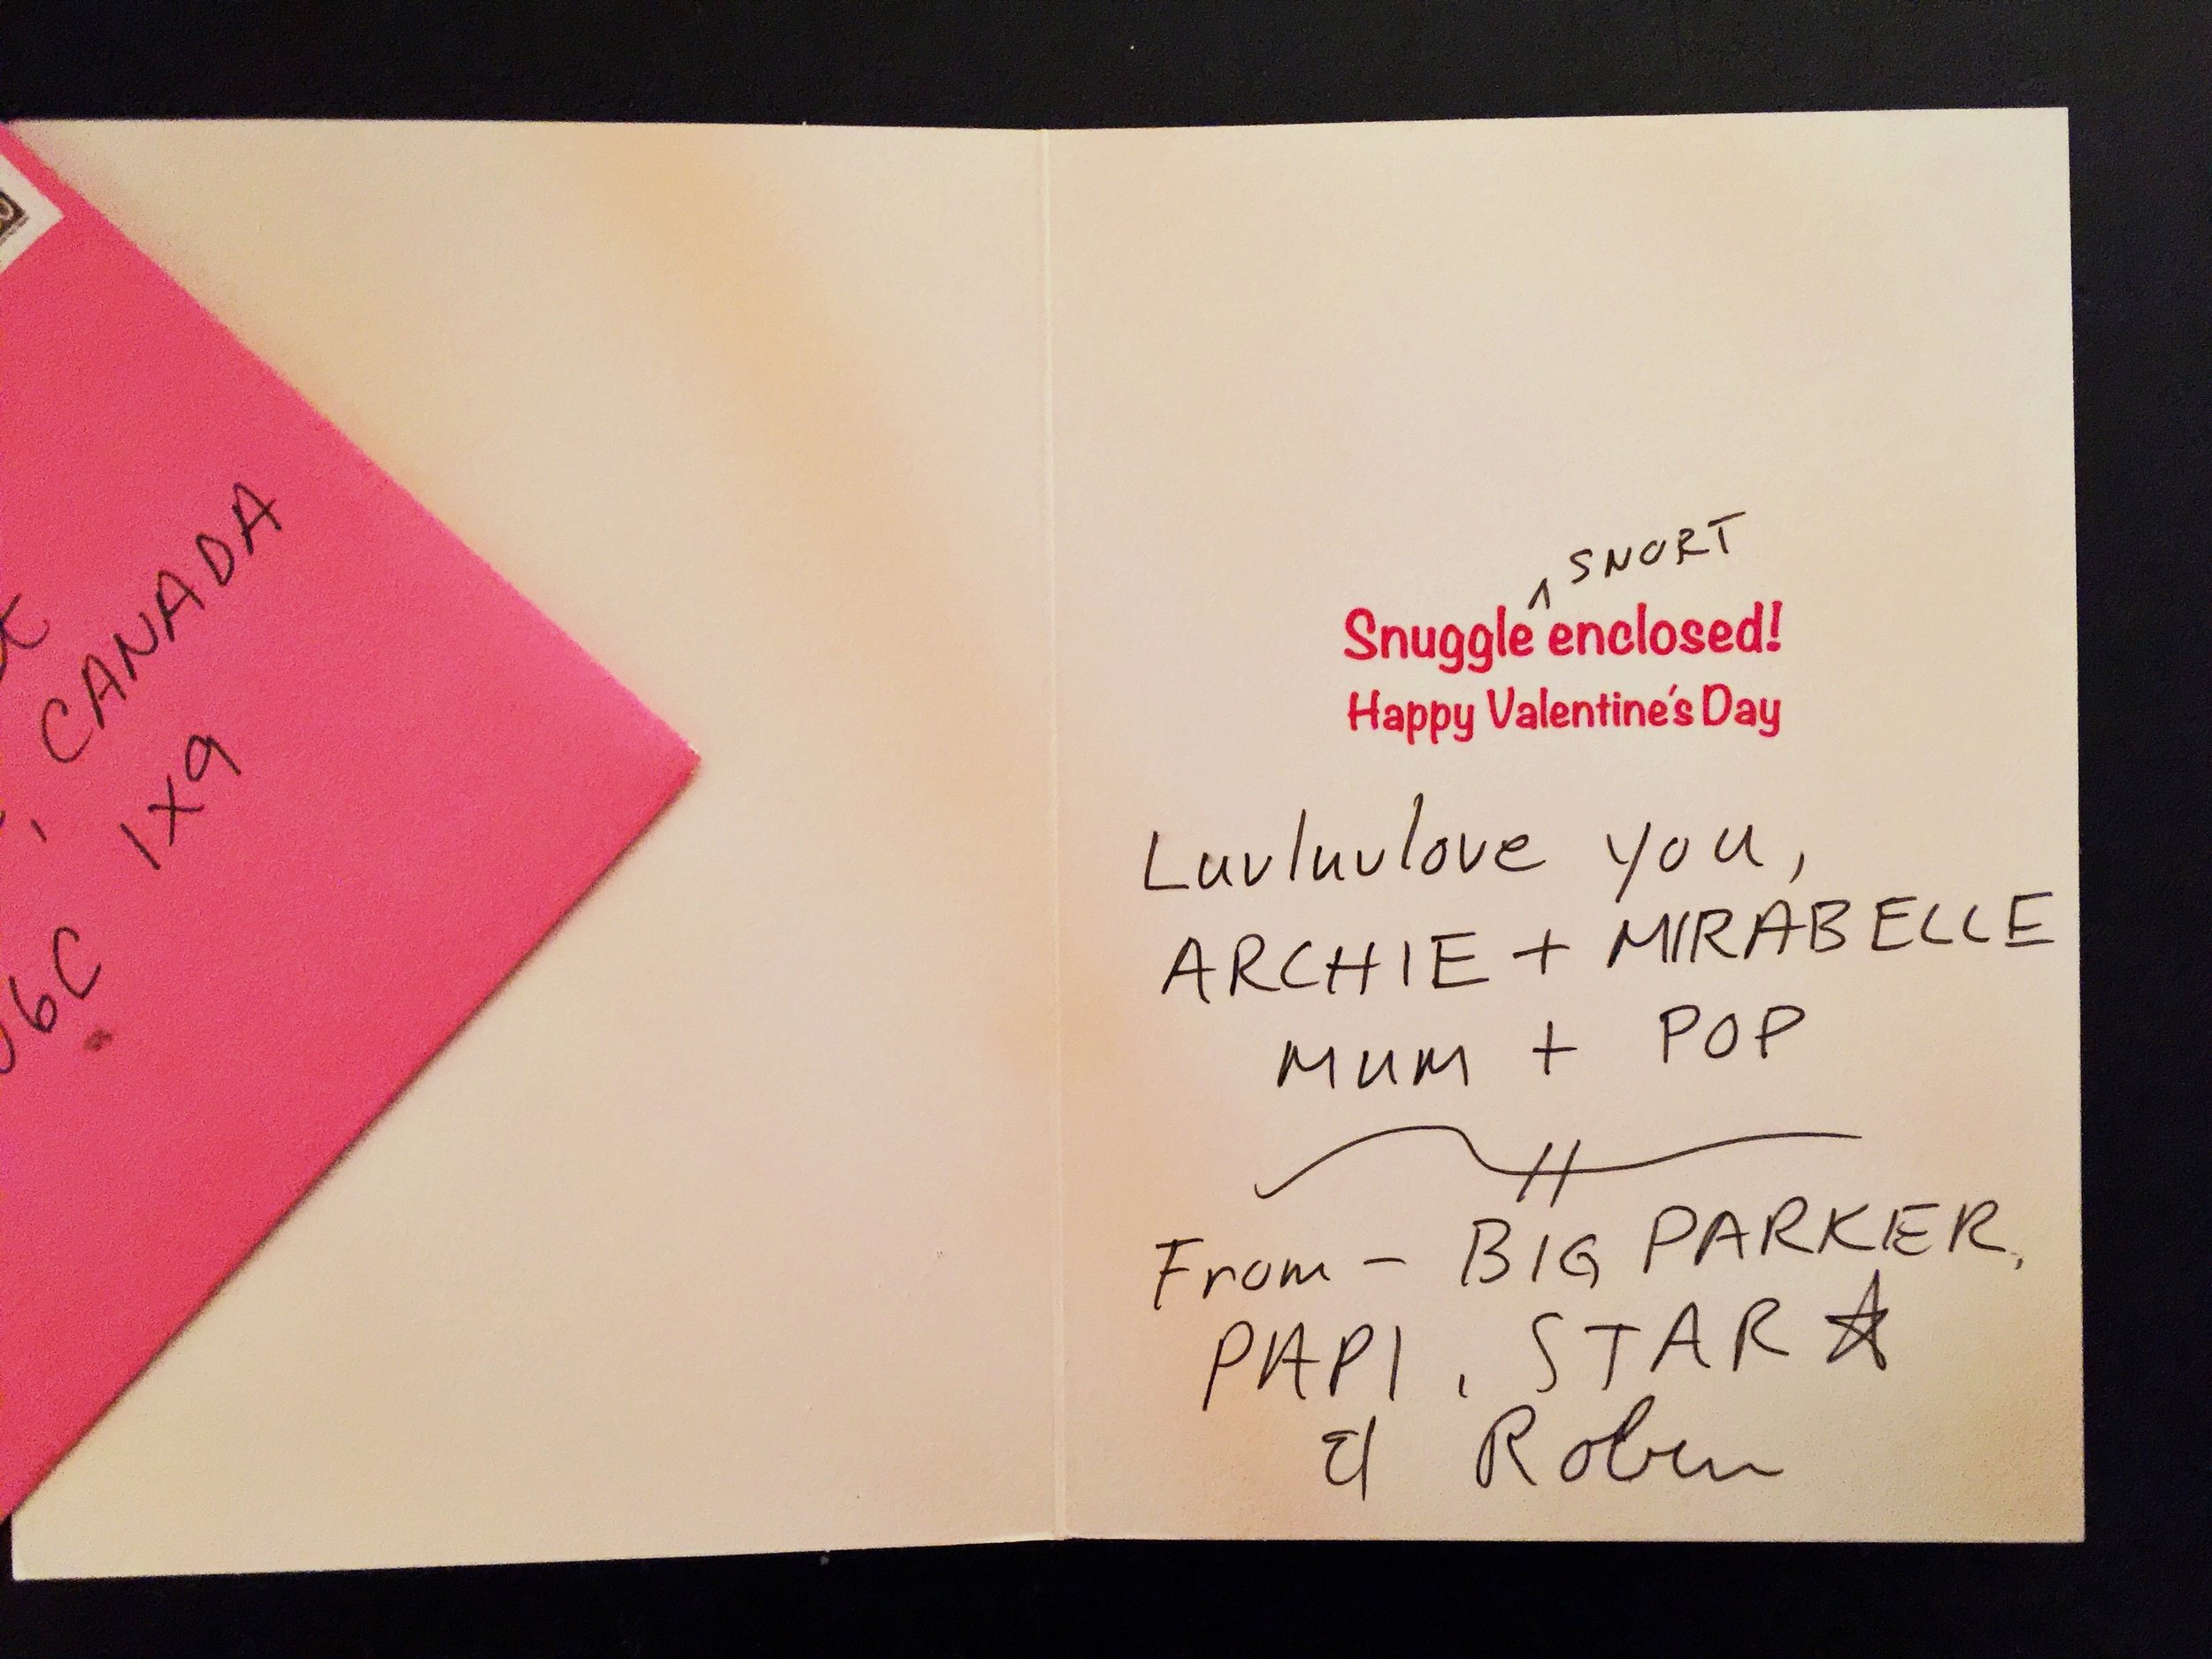 CANADA
1X9
6C
^ SNORT
Snuggle enclosed!
Happy Valentine's Day
Luvluvlove you,
ARCHIE + MIRABELLE
MUM + POP
From - BIG PARKER,
PAPI, STAR ☆
& Robin